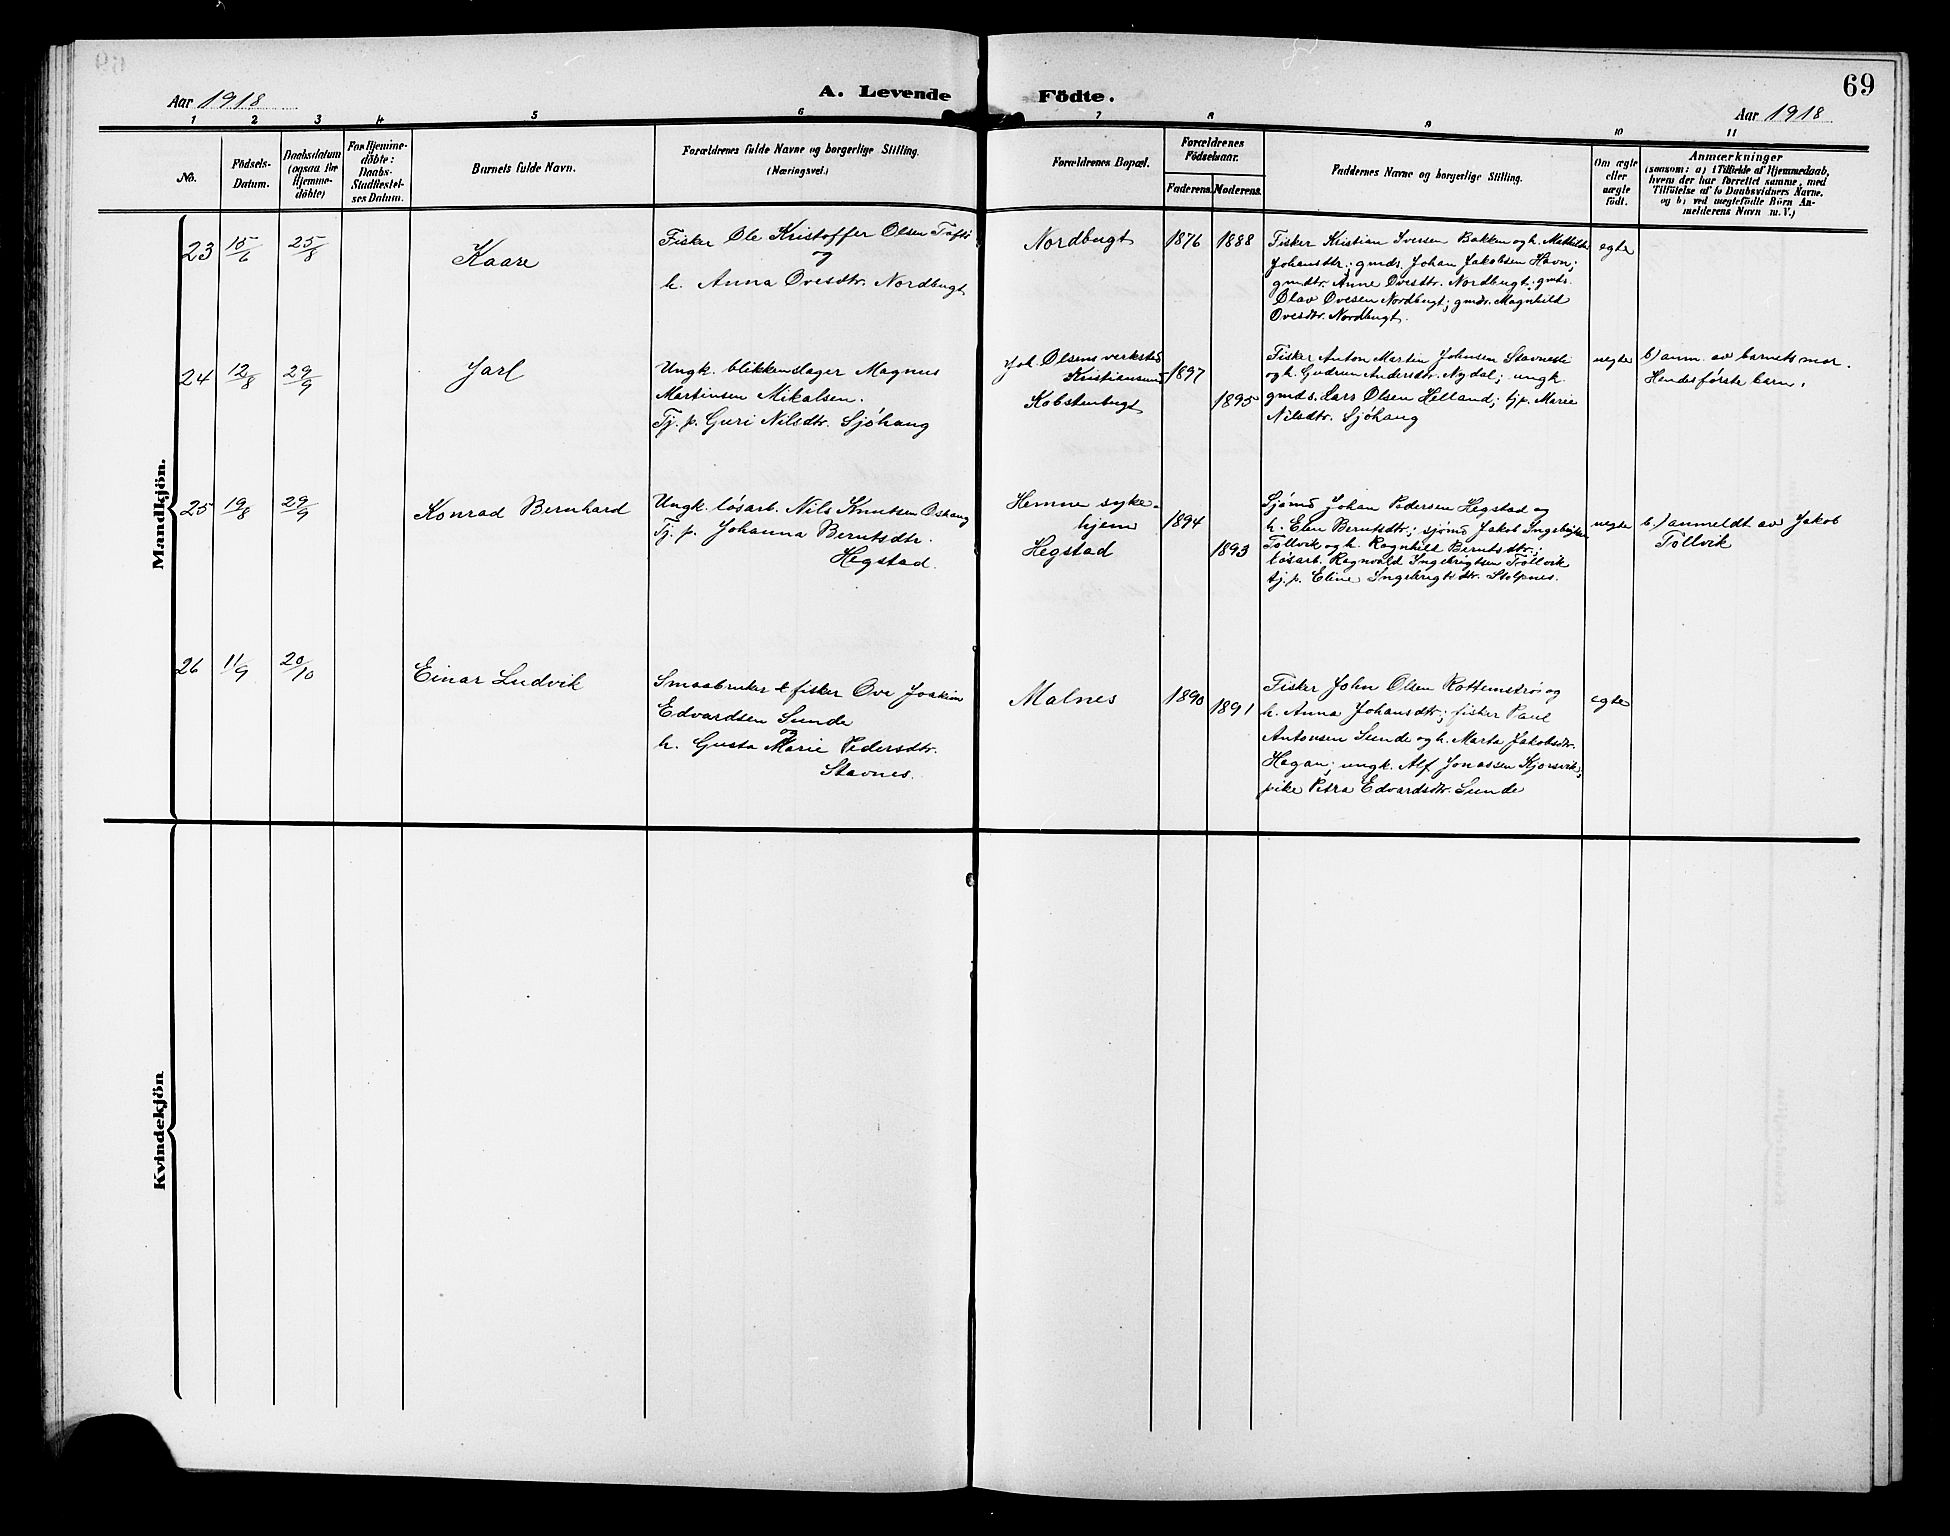 69
Aar 1918
A. Levende Födte.
Aar 1918
1 2 3 4 5 6 7 8 9 10 11
No.
Födsels-
Datum.
Daabsdatum
(ogsaa for
Hjemme-
döbte)
For Hjemme-
döbte:
Daabs-
Stadfestel-
ses Datum.
Barnets fulde Navn.
Forældrenes fulde Navne og borgerlige Stilling.
(Næringsvei.)
Forældrenes Bopæl.
Forældrenes
Födselsaar.
Faderens. Moderens.
Faddernes Navne og borgerlige Stilling.
Om ægte
eller
uægte
födt.
Anmærkninger
(saasom: a) i Tilfælde af Hjemmedaab,
hvem der har forrettet samme, med
Tilföielse af to Daabsvidners Navne.
og b) ved uægtefödte Börn An-
melderens Navn m. V.)
Mandkjön.
23 15/6 25/8
Kaare
Fisker Ole Kristoffer Olsen
og
h. Anna Ovesdtr. Nordbugt
Nordbugt
1876 1888
Fisker Kristian Iversen Bakken og h. Mathilde
Johansdtr.; gmds. Johan Jakobsen Havn;
gmdtr. Anne Ovesdtr. Nordbugt; gmds.
Olav Ovesen Nordbugt; gmds. Magnhild
Ovesdtr. Nordbugt.
egte
24 12/8 29/9
Jarl
Ungk. blikkenslager Magnus
Martinsen Mikalsen.
Tj. p. Guri Nilsdtr. Sjöhaug
Joh. Olsens verksted
Kristiansund
Kobstenbugt
1897
1895
Fisker Anton Martin Johnsen
og h. Gudrun Andersdtr. Nydal; ungk.
gmds. Lars Olsen Helland; tj.p. Marie
Nilsdtr. Sjöhaug
uegte
b) anm. av barnets mor.
Hendes første barn.
25 19/8 29/9
Konrad Bernhard
Ungk. løsarb. Nils Knutsen Oshaug
Tj. p. Johanna Berntsdtr.
Hegstad.
Hemne syke-
hjem
Hegstad
1894
1893
Sjömd Johan Pedersen Hegstad og
h. Elen Berntsdtr.; sjömd Jakob Ingebrigtsen
Tøllvik og h. Ragnhild Berntsdtr.;
løsarb. Ragnvald Ingebrigtsen Tøllvik
tj. p. Eline Ingebrigtsdtr. Stolpnes.
uegte
b) anmeldt av Jakob
Tøllvik
26 11/9 20/10
Einar Ludvik
Smaabruker & fisker Ove Joakim
Edvardsen Sunde
og
h. Gusta Marie Pedersdtr.
Stavnes.
Malnes
1890 1891
Fisker John Olsen Rottemsträ og
h. Anna Johansdtr.; fisker Paul
Antonsen Sunde og h. Marta Jakobsdtr.
Hagan; ungk. Alf Jonassen Kjorsvik;
pike Petra Edvardsdtr. Sunde
egte
Kvindekjön